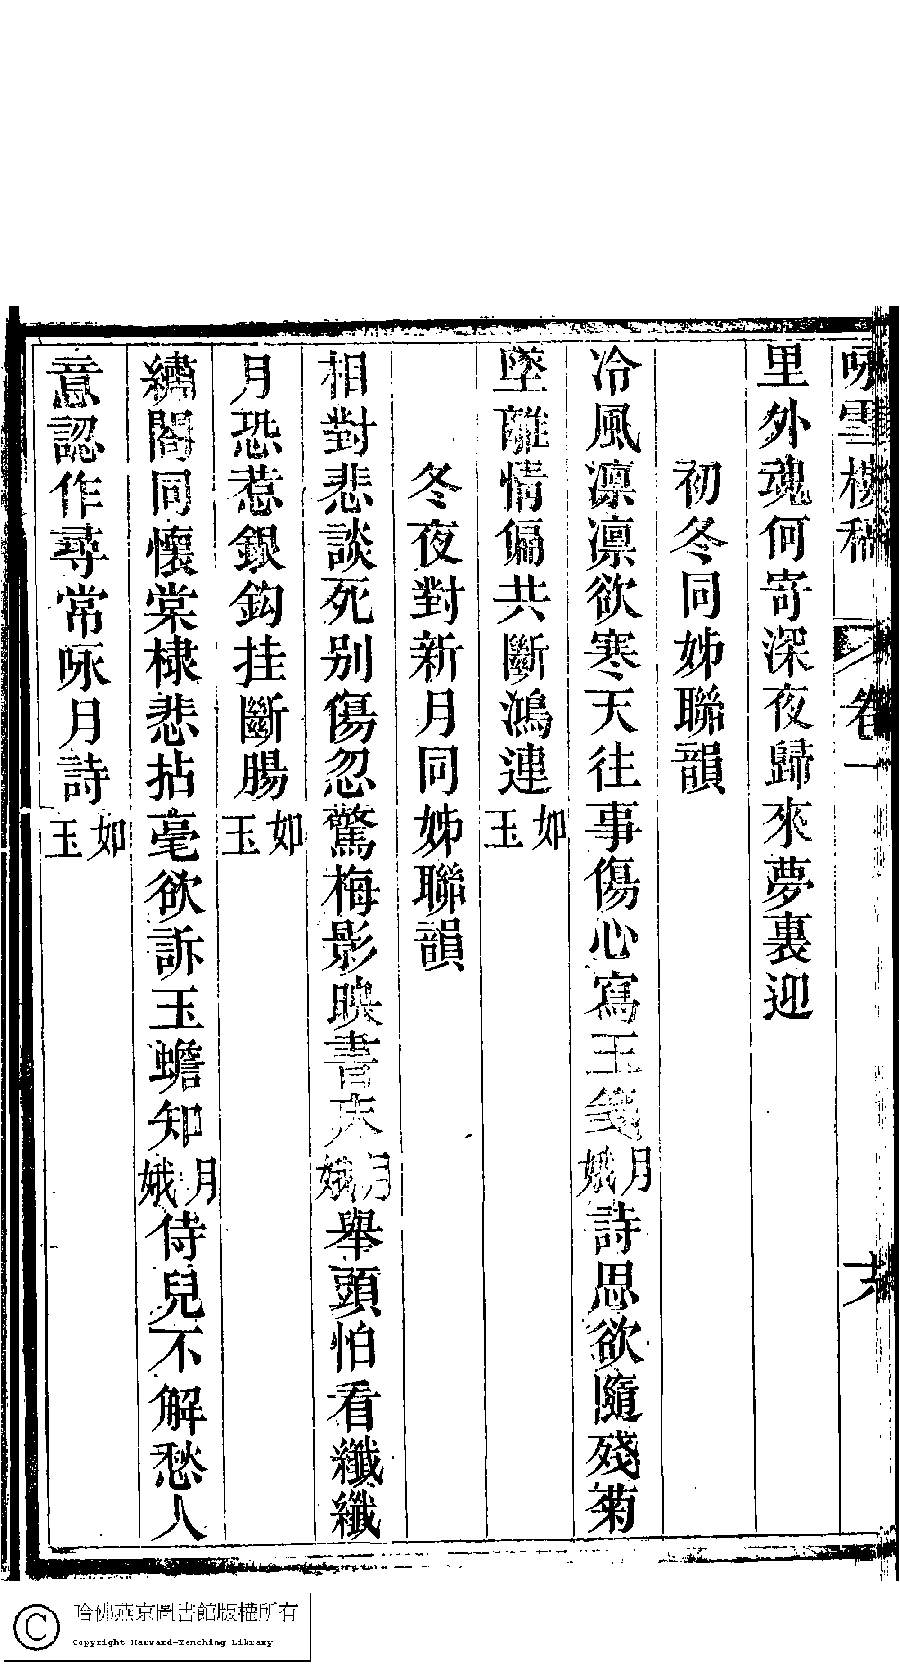 咏雪樓稿 卷一 十六
里外魂何寄深夜歸來夢裏迎
初冬同姊聯韻
冷風凛凛欲寒天往事傷心寫玉箋月娥詩思欲隨殘菊
墜離情偏共斷鴻連如玉
冬夜對新月同姊聯韻
相對悲談死別傷忽驚梅影映書床月娥舉頭怕看纖纖
月恐惹銀鈎挂斷腸如玉
繡閣同懷棠棣悲拈毫欲訴玉蟾知月娥侍兒不解愁人
意認作尋常咏月詩如玉
哈佛燕京圖書館版權所有
Copyright Harvard-Yenching Library